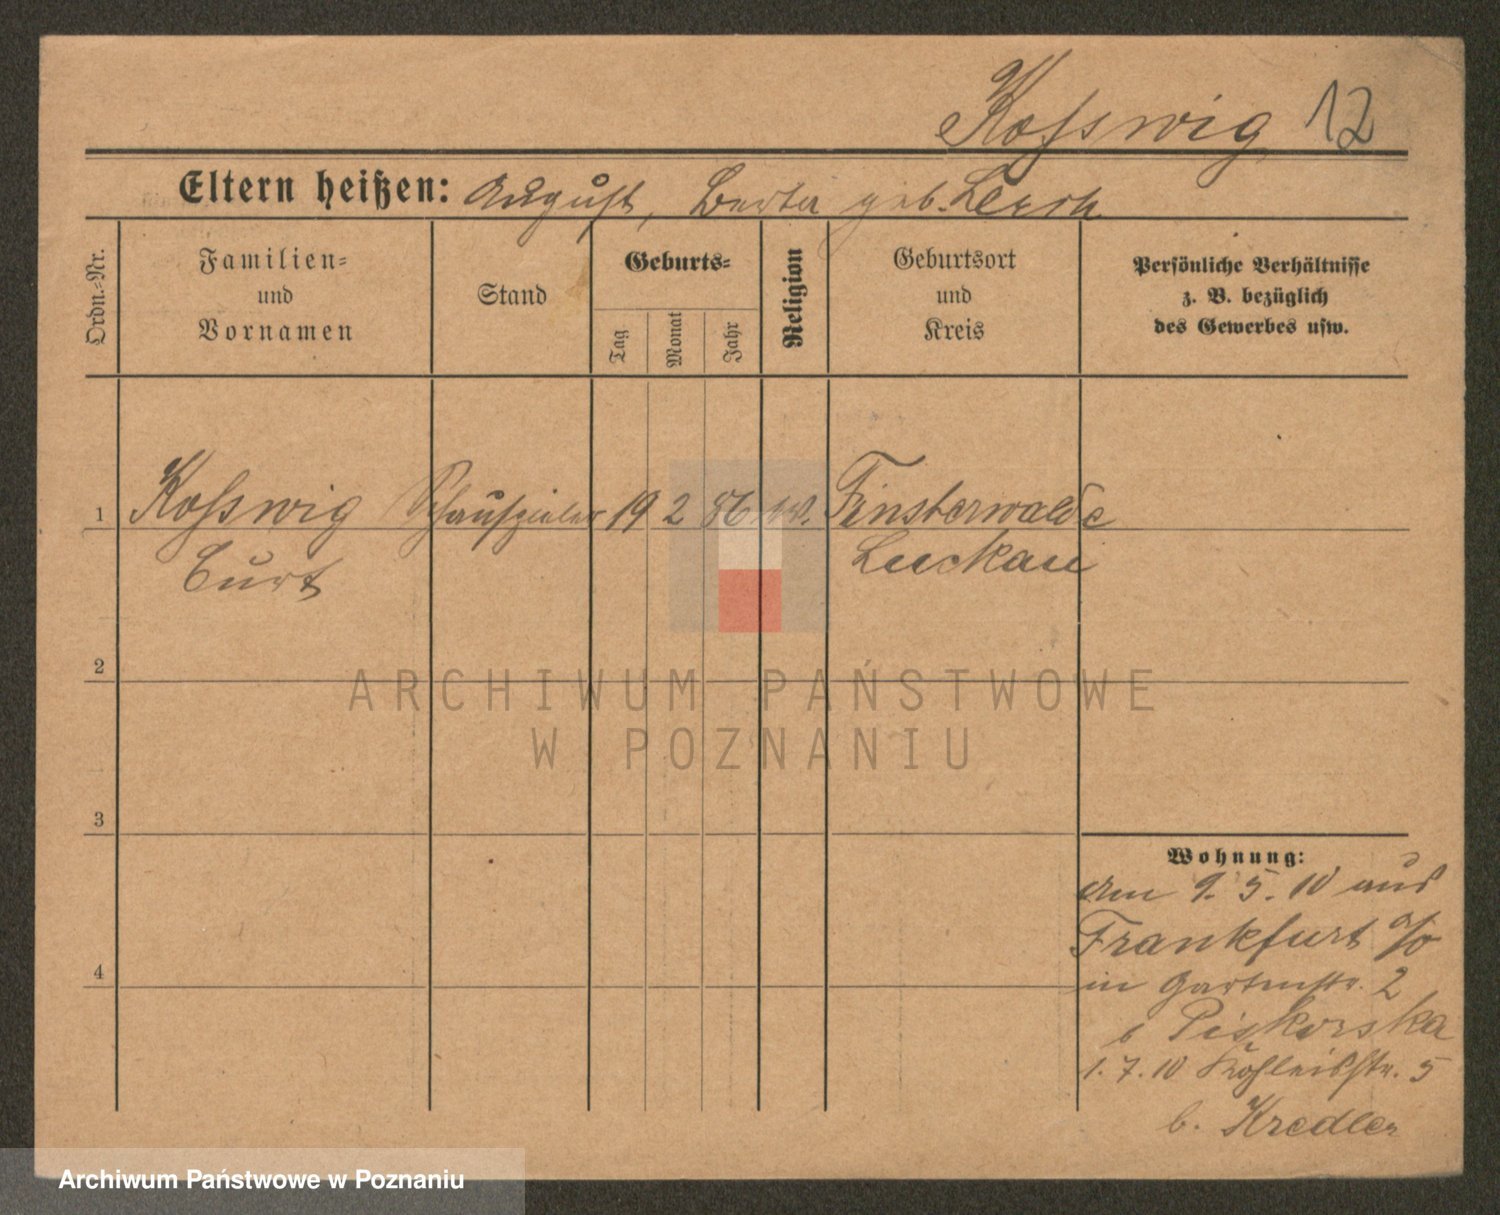 Kosswig 12
Eltern heißen: August, Berta geb. Lersch
Ordn.-Nr.
Familien-
und
Vornamen
Stand
Geburts-
Tag
Monat
Jahr
Religion
Geburtsort
und
Kreis
Persönliche Verhältnisse
z. B. bezüglich
des Gewerbes usw.
1 Kosswig Schauspieler 19 2 86 ev. Finsterwalde
Curt Luckau
2
ARCHIWUM PAŃSTWOWE
W POZNANIU
3
Wohnung:
am 9. 5. 10 aus
Frankfurt a/O
4
in Gartenstr. 2
b Piskorska
1. 7. 10 5
b. Kredler
Archiwum Państwowe w Poznaniu